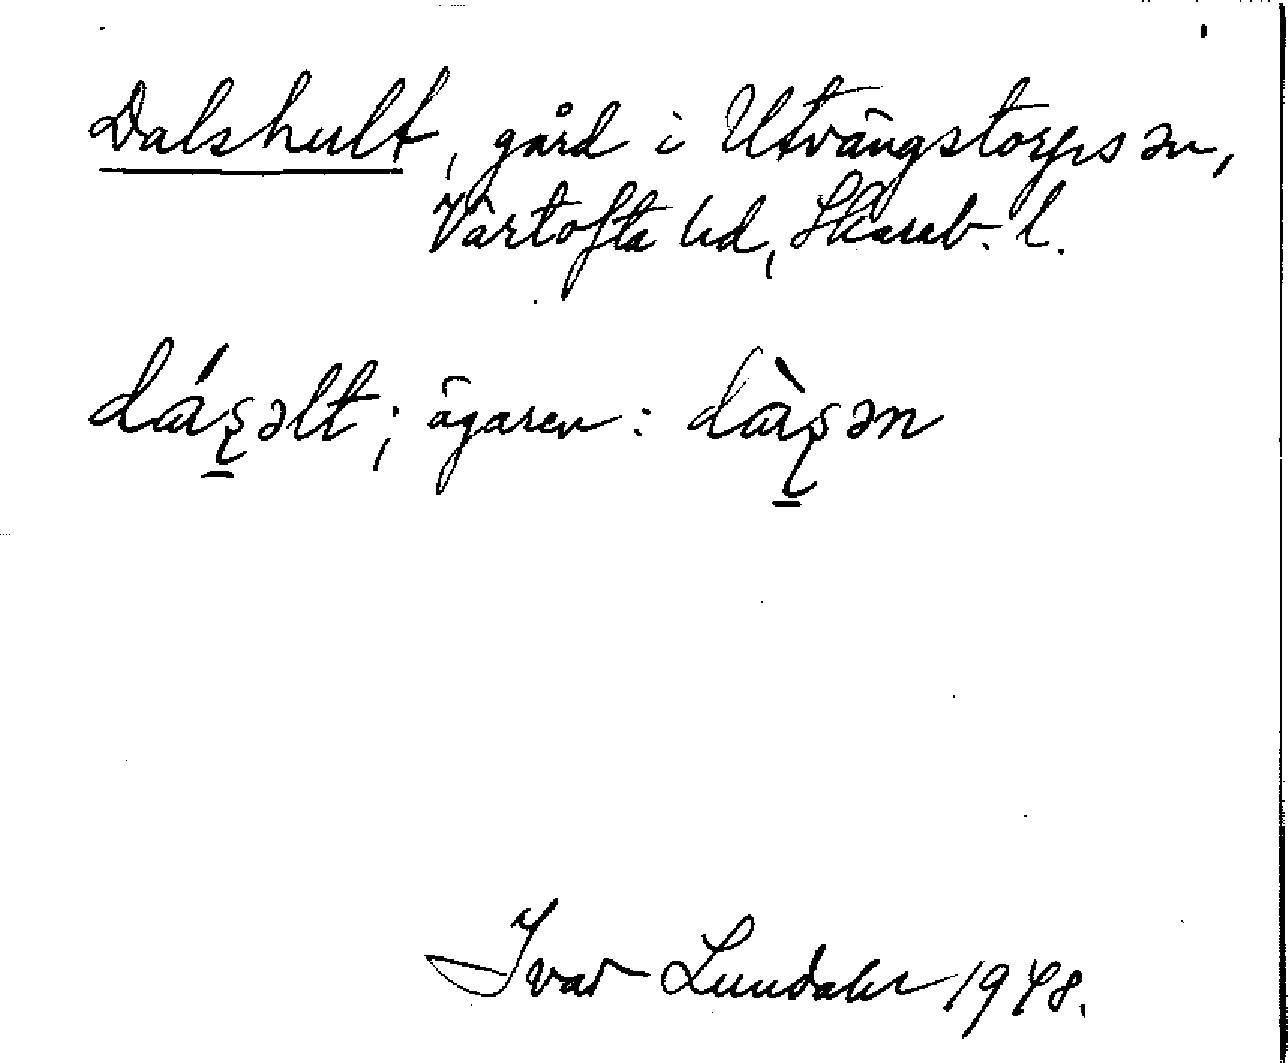 Dalshult, gård i Utvängstorps sn,
Vartofta hd, Skarab. l.
dáʂəlt; ägaren: dàʂən
Ivar Lundahl 1948.